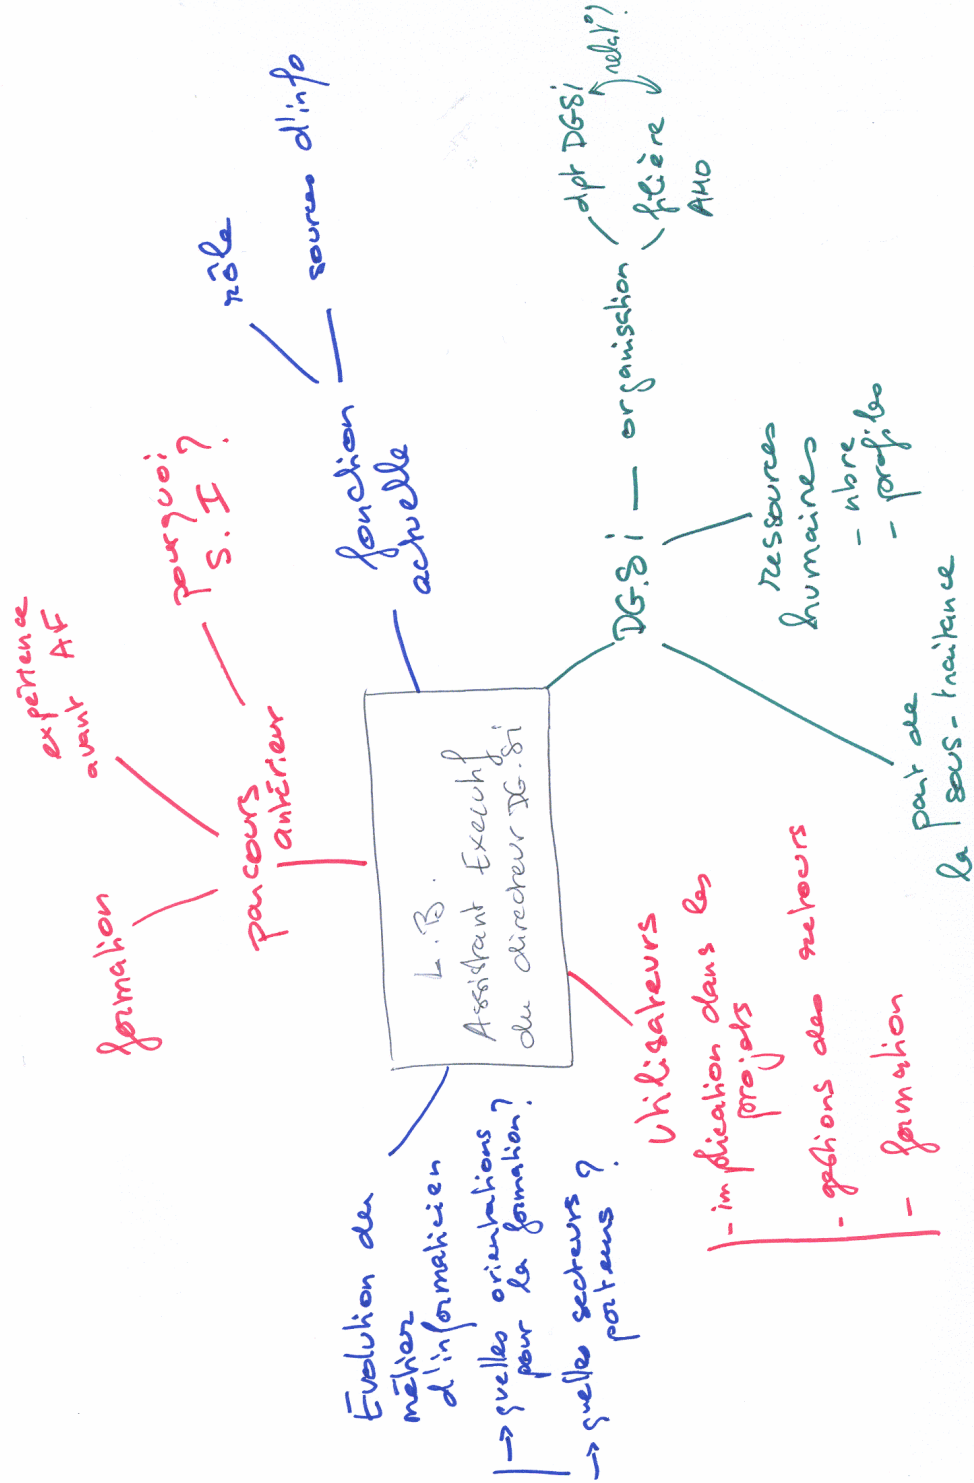 L.B.
Assistant Executif
du directeur DG.Si
parcours
antérieur
formation
expérience
avant AF
pourquoi
S.I ?
fonction
actuelle
rôle
sources d'info
DG.Si
organisation
dpt DGSi
filière
AMO
relat°?
ressources
humaines
- nbre
- profiles
part de
la sous-traitance
Utilisateurs
- implication dans les
projets
- gestions des retours
- formation
Evolution du
métier
d'informaticien
→ quelles orientations
pour la formation ?
→ quelles secteurs ?
porteurs